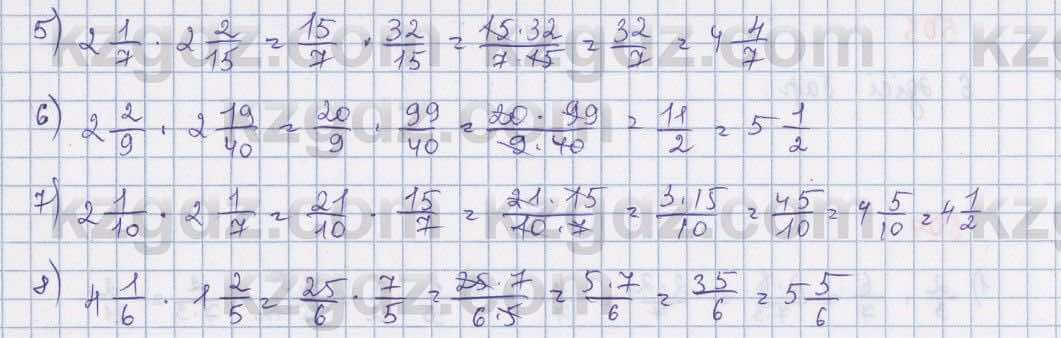 5) 2 1/7 · 2 2/15 = 15/7 · 32/15 = 15·32/7·15 = 32/7 = 4 4/7
6) 2 2/9 · 2 19/40 = 20/9 · 99/40 = 20·99/9·40 = 11/2 = 5 1/2
7) 2 1/10 · 2 1/7 = 21/10 · 15/7 = 21·15/10·7 = 3·15/10 = 45/10 = 4 5/10 = 4 1/2
8) 4 1/6 · 1 2/5 = 25/6 · 7/5 = 25·7/6·5 = 5·7/6 = 35/6 = 5 5/6